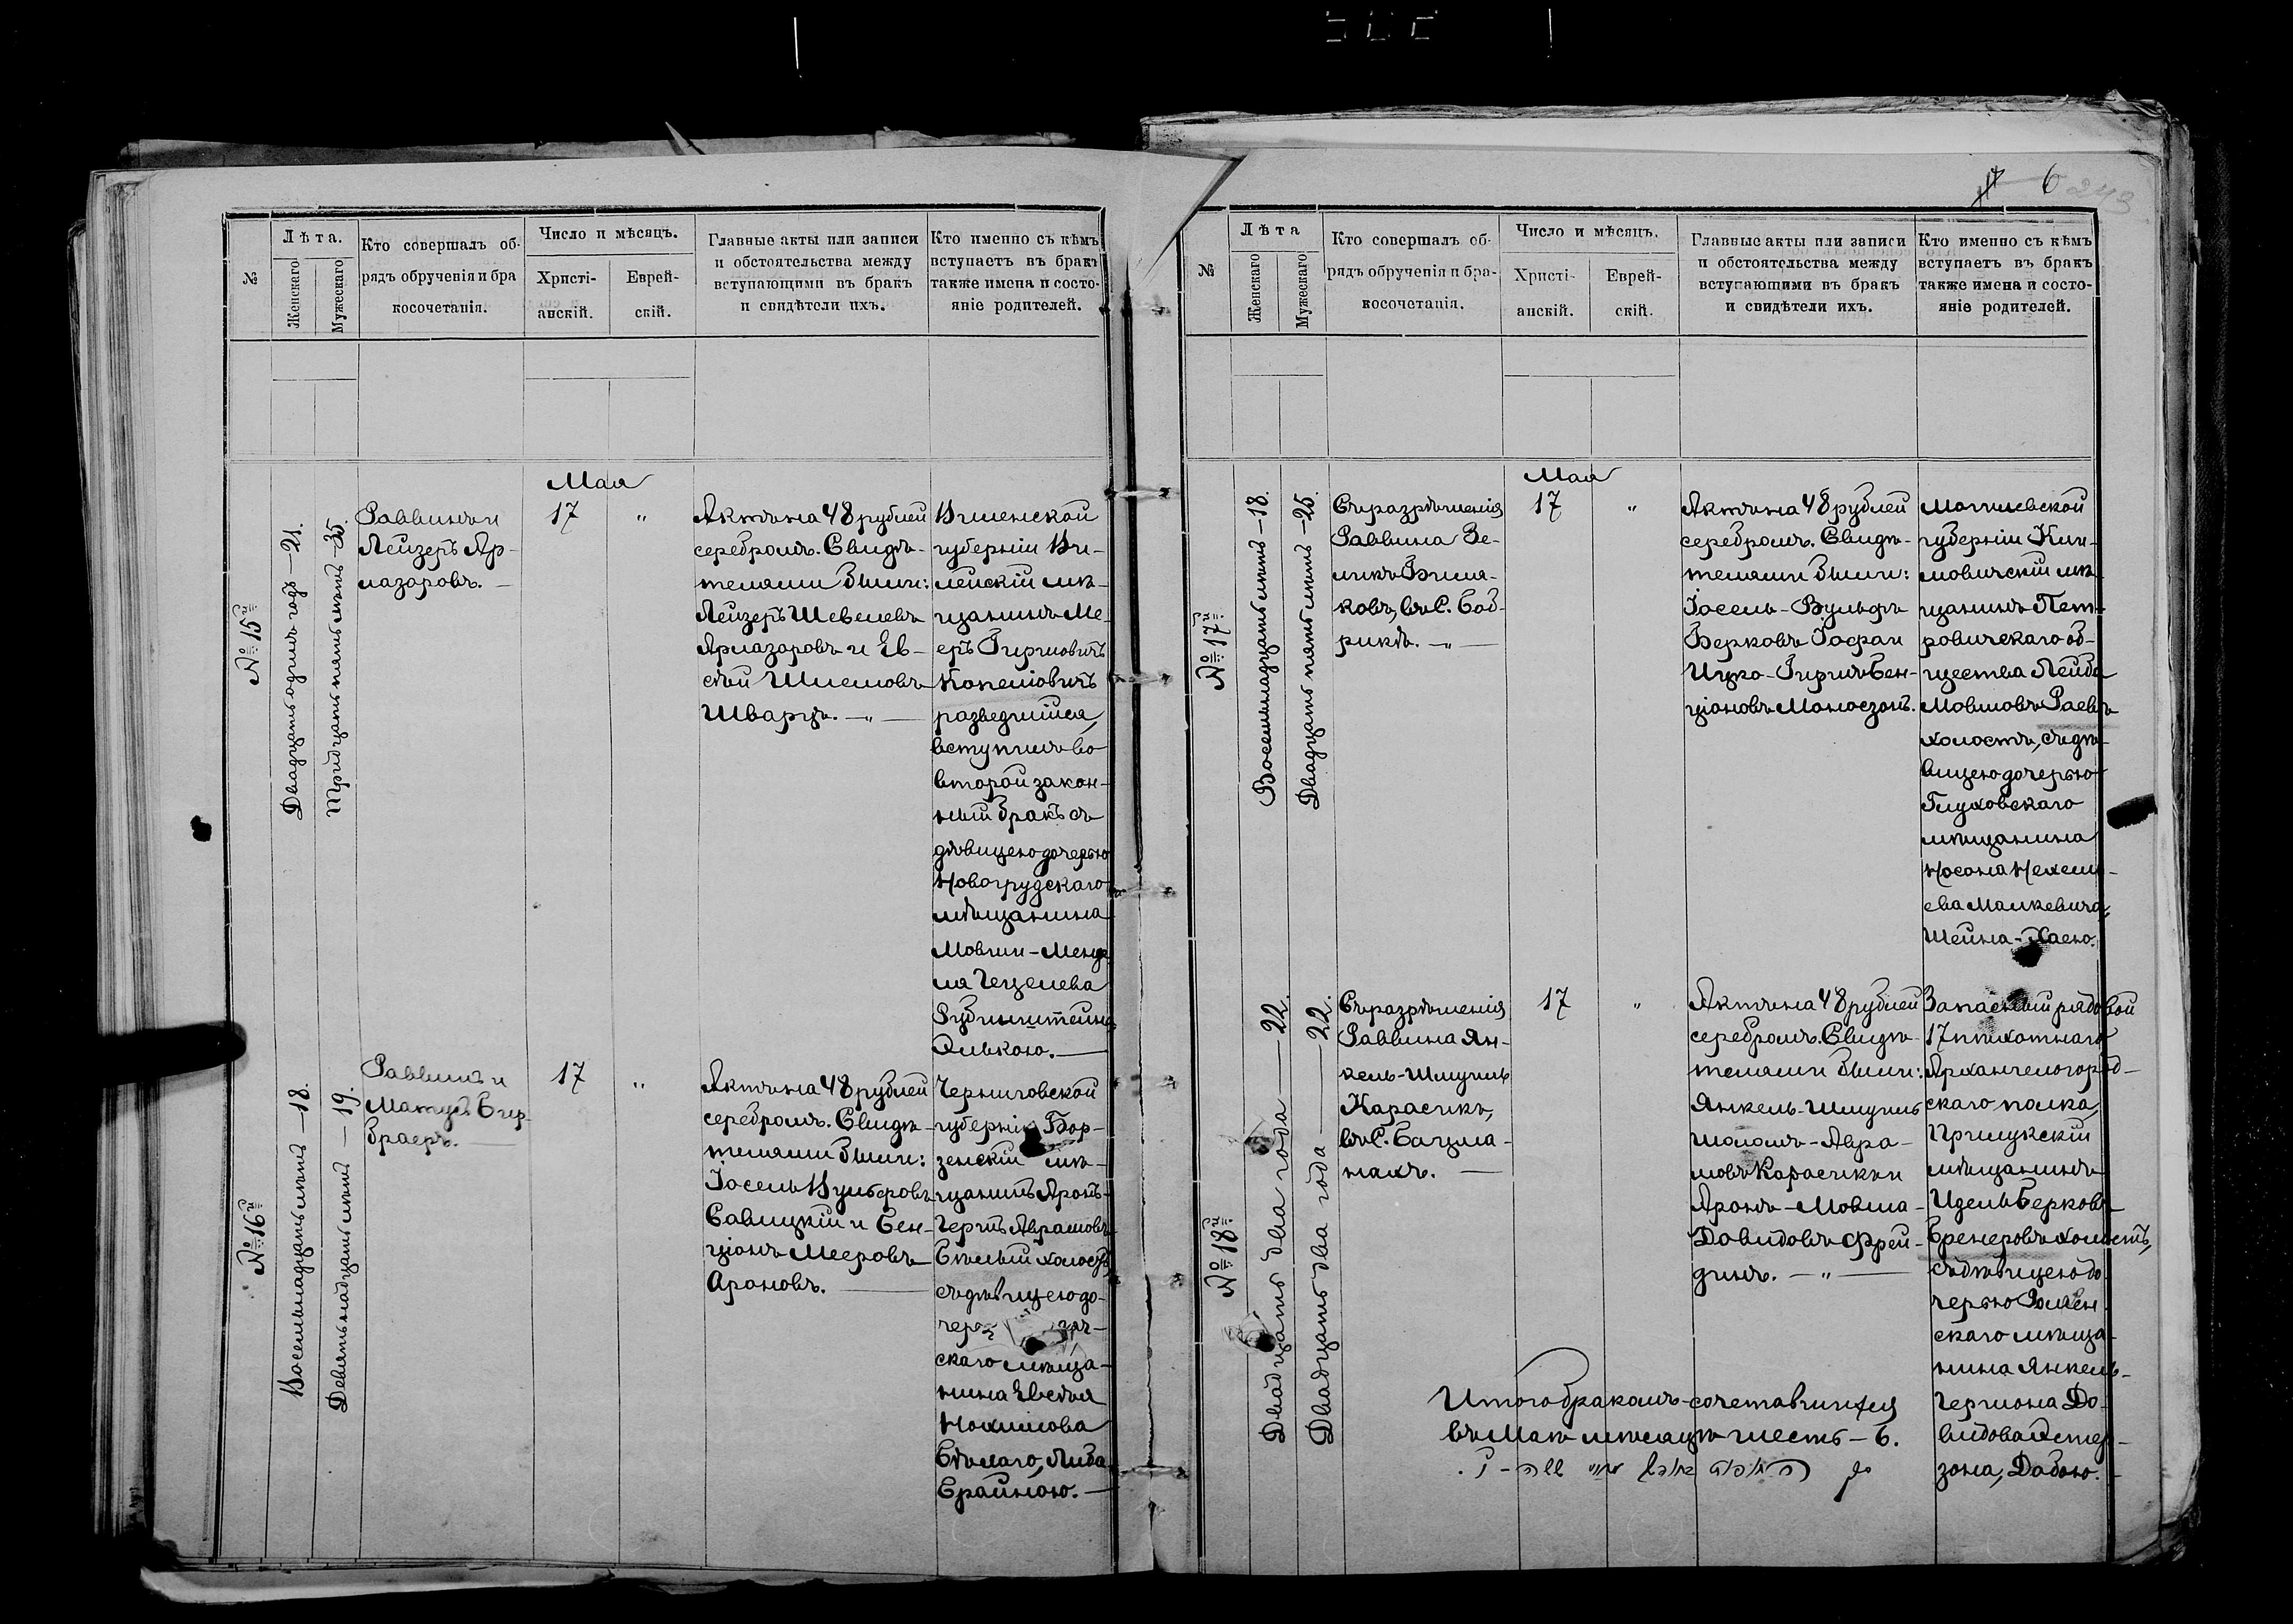 №
Лѣта.
Женскаго
Мужескаго
Кто совершалъ об-
рядъ обрученія и бра
косочетанія.
Число и мѣсяцъ.
Христі-
анскій.
Еврей-
скій.
Главные акты или записи
и обстоятельства между
вступающими въ бракъ
и свидѣтели ихъ.
Кто именно съ кѣмъ
вступаетъ въ бракъ
также имена и состо-
яніе родителей.
№ 15й
Двадцать одинъ годъ — 21.
Тридцать пять лѣтъ — 35.
Раввинъ и
Лейзеръ Ар-
лазоровъ. —
Мая
17
"
Актъ на 48 рублей
серебромъ. Свидѣ-
телями были:
Лейзеръ Шевелевъ
Арлазоровъ и Ев-
сѣй Шлемовъ
Шварцъ. — " —
Виленской
губерніи Ви-
ленскій мѣ-
щанинъ Ме-
еръ Гиршовичъ
Копелiовичъ
разведшійся,
вступилъ во
второй закон-
ный бракъ съ
дѣвицею дочерью
Новогрудскаго
мѣщанина
Мовши-Менде
ля Гецелева
Рубинштейна
Элькою. —
№ 16й
Восемьнадцать лѣтъ — 18.
Девятьнадцать лѣтъ — 19.
Раввинъ и
Матусъ Бир-
браеръ. —
17
"
Актъ на 48 рублей
серебромъ. Свидѣ-
телями были:
Іосель Вульфовъ
Савицкій и Бен-
ціонъ Мееровъ
Ароновъ. —
Черниговской
губерніи Бор-
зенскій мѣ-
щанинъ Аронъ-
Гершъ Аврамовъ
Бѣлый холостъ,
съ дѣвицею до-
скаго мѣща-
нина Евсѣя
Нохимова
Бѣлаго, Либа
Брайною. —
7 6 243
№
Лѣта
Женскаго
Мужескаго
Кто совершалъ об-
рядъ обрученія и бра-
косочетанія.
Число и мѣсяцъ.
Христі-
анскій.
Еврей-
скій.
Главные акты или записи
и обстоятельства между
вступающими въ бракъ
и свидѣтели ихъ.
Кто именно съ кѣмъ
вступаетъ въ бракъ
также имена и состо-
яніе родителей.
№ 17й
Восемьнадцать лѣтъ — 18.
Двадцать пять лѣтъ — 25.
Съ разрѣшенія
Раввина Зе-
ликъ
въ С. Бод-
рикѣ. — " —
Мая
17
"
Актъ на 48 рублей
серебромъ. Свидѣ-
телями были:
Іосель-Вульфъ
Берковъ Іофа и
Ицко-Гиршъ Бен-
ціоновъ Моносзонъ.
Могилевской
губерніи Кли-
мовичскій мѣ-
щанинъ Пет-
ровичскаго об-
щества Лейба
Мовшовъ Раевъ
холостъ, съ дѣ-
вицею дочерью
Глуховскаго
мѣщанина
Носона Нехеми-
ева Малкевича,
Шейна-Хаею.
№ 18й
Двадцать два года — 22.
Двадцать два года — 22.
Съ разрѣшенія
Раввина Ян-
кель-Шмуиль
Карасикъ,
въ С. Бацма-
нахъ. —
17
"
Актъ на 48 рублей
серебромъ. Свидѣ-
телями были:
Янкель-Шмуиль
Шоломъ-Авра-
мовъ Карасикъ и
Аронъ-Мовша-
Давидовъ Фрей-
динъ. — " —
Запасный рядовой
17 пѣхотнаго
Архангелогород-
скаго полка,
Прилукскій
мѣщанинъ
Идель Берковъ
Бренеровъ холостъ,
съ дѣвицею до-
черью Ромен
скаго мѣща-
нина Янкель-
Гершона До-
видова Эстер-
зона, Добою. —
Итого бракомъ-сочетавшихся
въ Маѣ мѣсяцѣ шесть — 6.